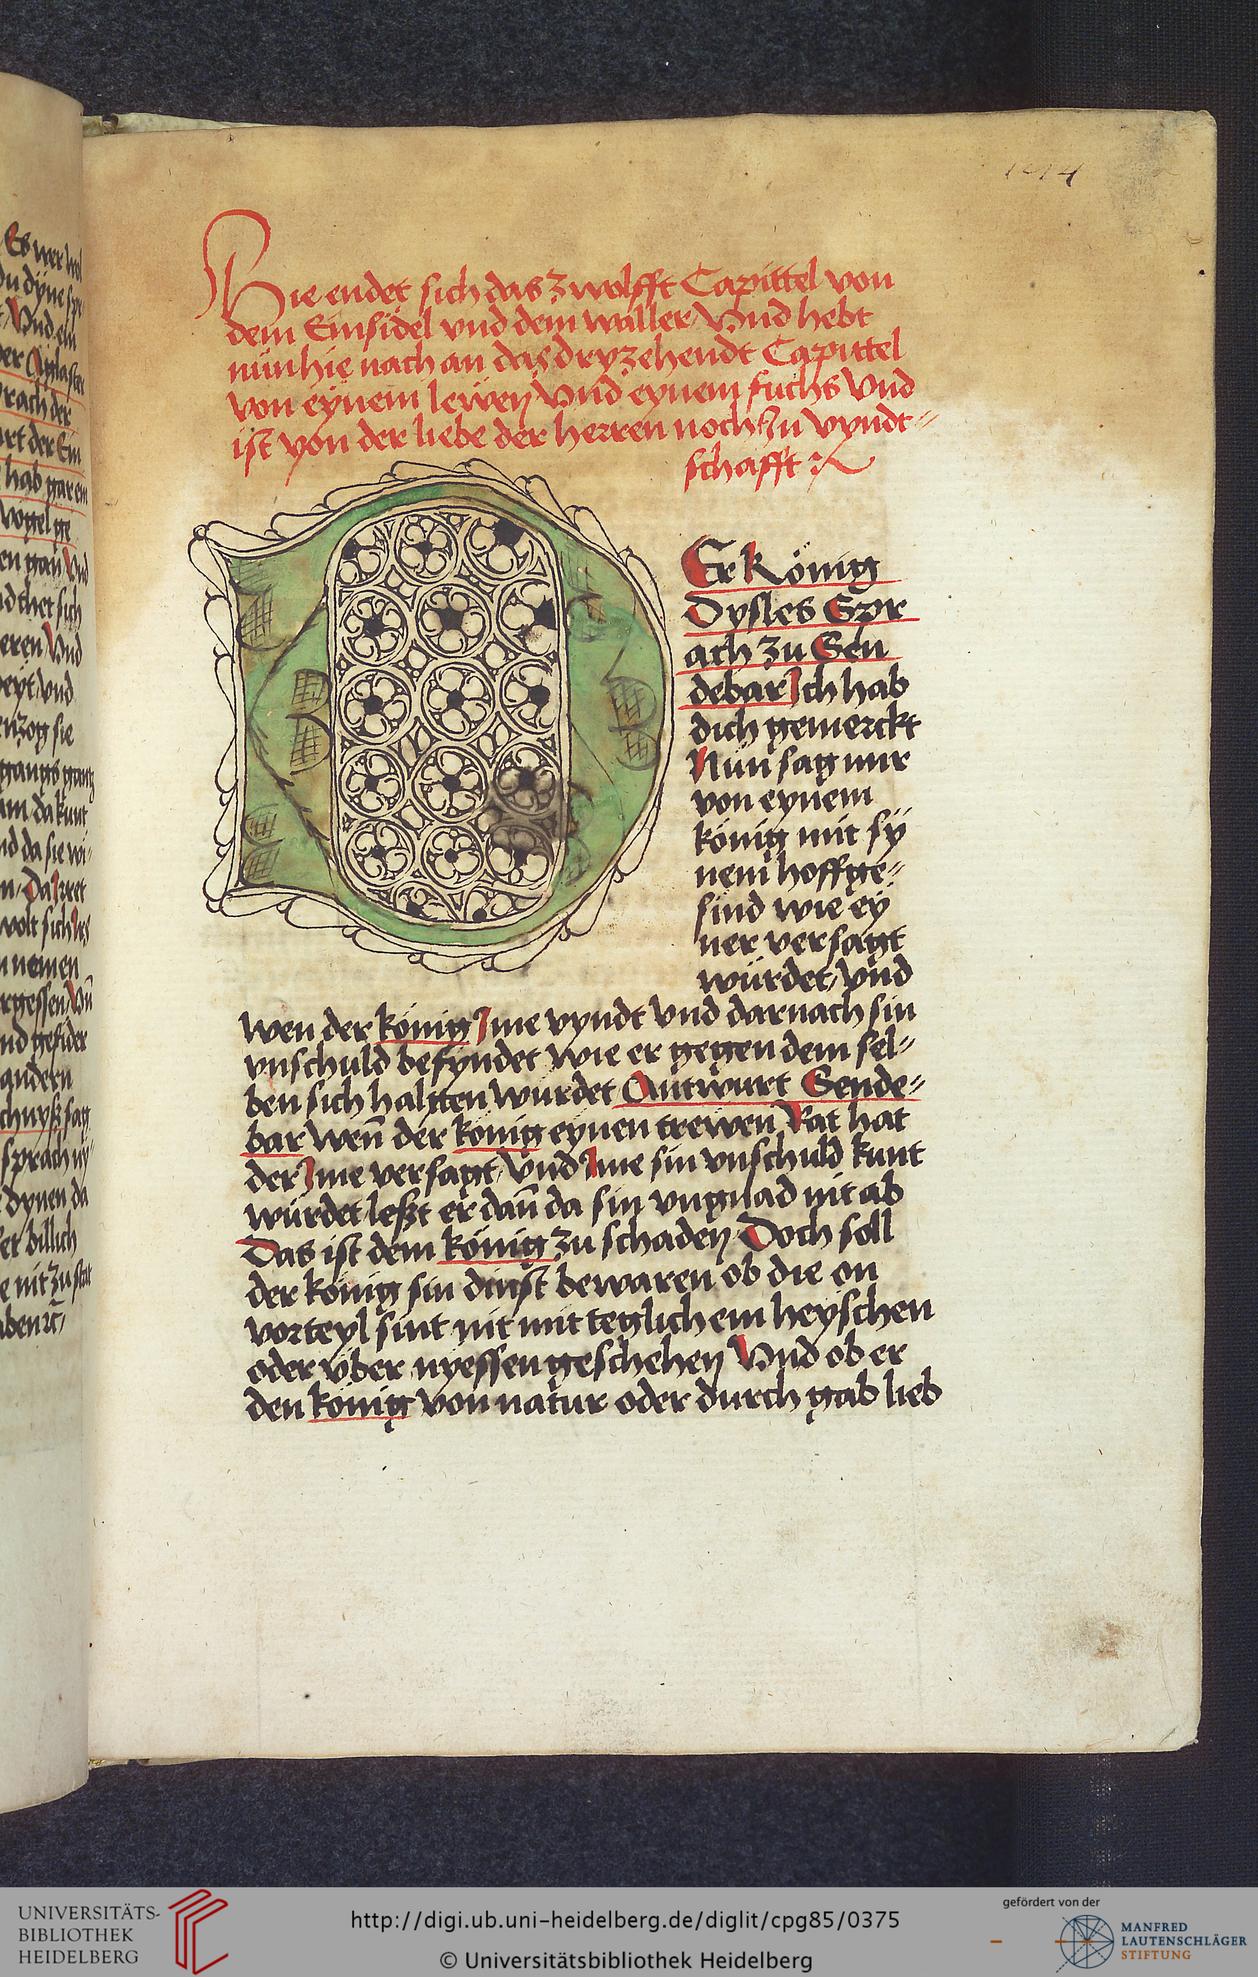 Hie endet sich das zwolfft Capittel von
dem Einsidel vnd dem waller Vnd hebt
nün hie nach an das dryzehendt Capittel
von eynem lewen Vnd eynem fuchs Vnd
ist von der liebe der herren noch zu vyndt-
schafft
D
Er König
Dysles Spr
ach zu Sen
debar Ich hab
dich gemerckt
Nün sag mir
von eynem
könig mit sy
nem hoffge-
sind wie ey
ner versagt
würdet Vnd
wen der könig Ime vyndt Vnd darnach sin
vnschuld befyndet wie er gegen dem sel-
ben sich haltten wurdet Antwurt Sende-
bar wen̄ der könig eynen trewen Rat hat
der Ime versagt Vnd Ime sin vnschuld kunt
würdet leßt er dan̄ da sin vngnad nit ab
Das ist dem könig zu schaden Doch soll
der könig sin dinst bewaren ob die on
vorteyl sint nit mit teglichem heyschen
oder vber nyessen geschehen Vnd ob er
den könig von natur oder durch gab lieb
Es wer
du dyne
Vnd ein
der
sprach der
der Ein
hab gar ein
vogel ge
Vnd
thet sich
Vnd
vnd
sie
da kunt
da sie wi-
wolt sich
nemen
vergessen
gefider
andern
sag
sprach
dynen da
billich
nit zu
haben
UNIVERSITÄTS-
BIBLIOTHEK
HEIDELBERG
http://digi.ub.uni-heidelberg.de/diglit/cpg85/0375
© Universitätsbibliothek Heidelberg
gefördert von der
MANFRED
LAUTENSCHLÄGER
STIFTUNG